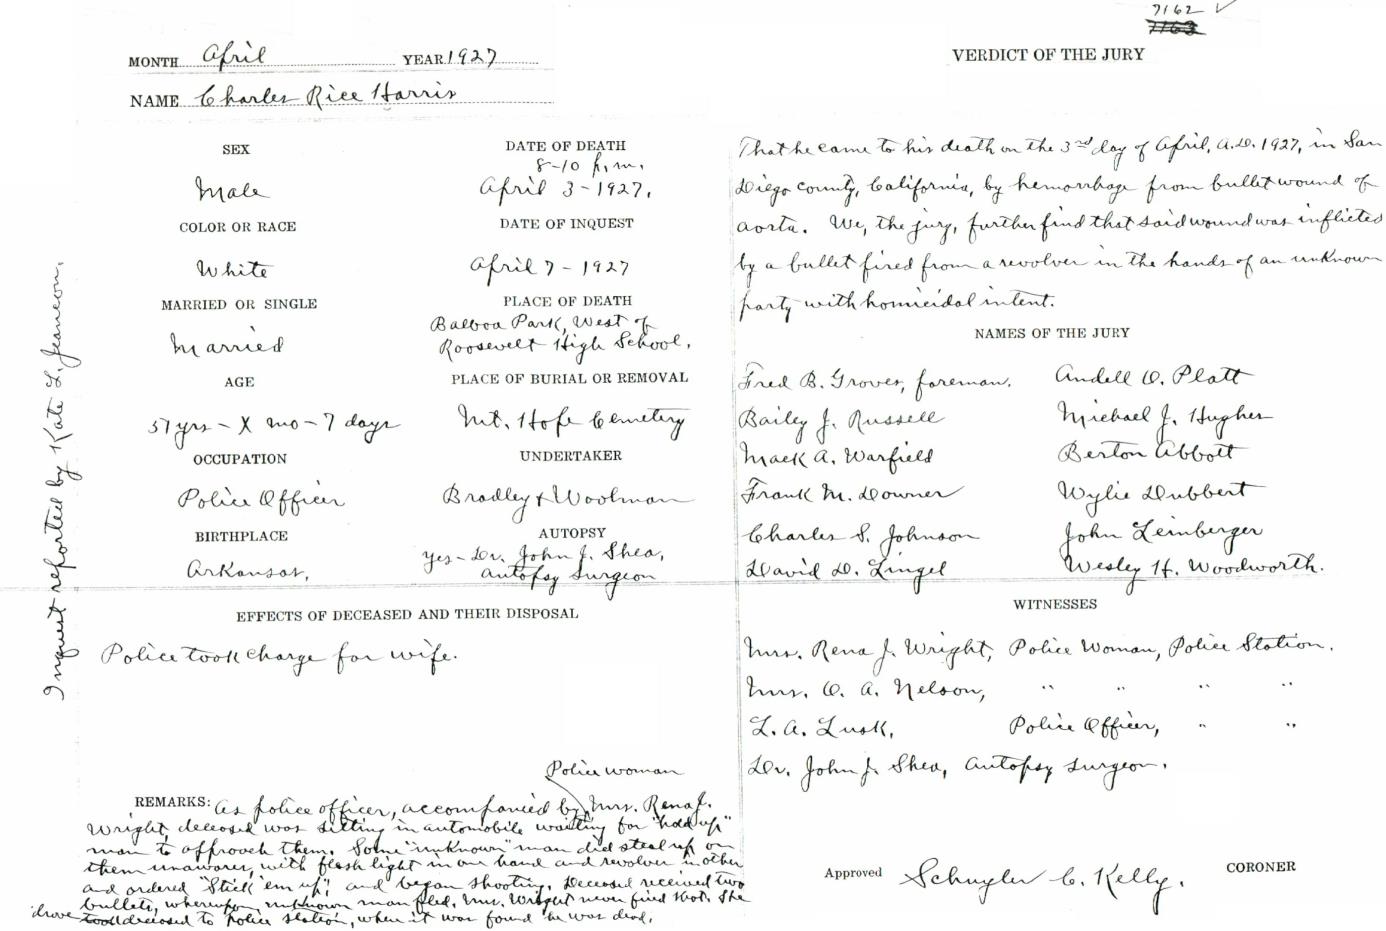 7162 ✓
7163
MONTH April YEAR 1927
NAME Charles Rice Harris
SEX
Male
COLOR OR RACE
White
MARRIED OR SINGLE
Married
AGE
57 yrs - X mo - 7 days
OCCUPATION
Police Officer
BIRTHPLACE
Arkansas.
DATE OF DEATH
8-10 p.m.
April 3-1927.
DATE OF INQUEST
April 7-1927
PLACE OF DEATH
Balboa Park, West of
Roosevelt High School.
PLACE OF BURIAL OR REMOVAL
Mt. Hope Cemetery
UNDERTAKER
Bradley & Woolman
AUTOPSY
Yes - Dr. John J. Shea,
Autopsy Surgeon
EFFECTS OF DECEASED AND THEIR DISPOSAL
Police took charge for wife.
Police woman
REMARKS: As police officer, accompanied by Mrs. Rena J.
Wright, deceased was sitting in automobile waiting for "hold up"
man to approach them. Some "unknown" man did steal up on
them unawares, with flash light in one hand and revolver in other
and ordered "Stick 'em up", and began shooting. Deceased received two
bullets, whereupon unknown man fled. Mrs. Wright never fired shot. She
drove took deceased to police station, when it was found he was dead.
Inquest reported by Kate L. Jeancon.
VERDICT OF THE JURY
That he came to his death on the 3rd day of April, A.D. 1927, in San
Diego County, California, by hemorrhage from bullet wound of
aorta. We, the jury, further find that said wound was inflicted
by a bullet fired from a revolver in the hands of an unknown
party with homicidal intent.
NAMES OF THE JURY
Fred B. Groves, foreman. Andell O. Platt
Bailey J. Russell Michael J. Hughes
Mack A. Warfield Berton Abbott
Frank M. Downer Wylie Dubbert
Charles S. Johnson John Leinberger
David D. Lingel Wesley H. Woodworth.
WITNESSES
Mrs. Rena J. Wright, Police Woman, Police Station.
Mrs. O. A. Nelson, " " " "
L. A. Lusk, Police Officer, " "
Dr. John J. Shea, Autopsy Surgeon.
Approved Schuyler C. Kelly. CORONER